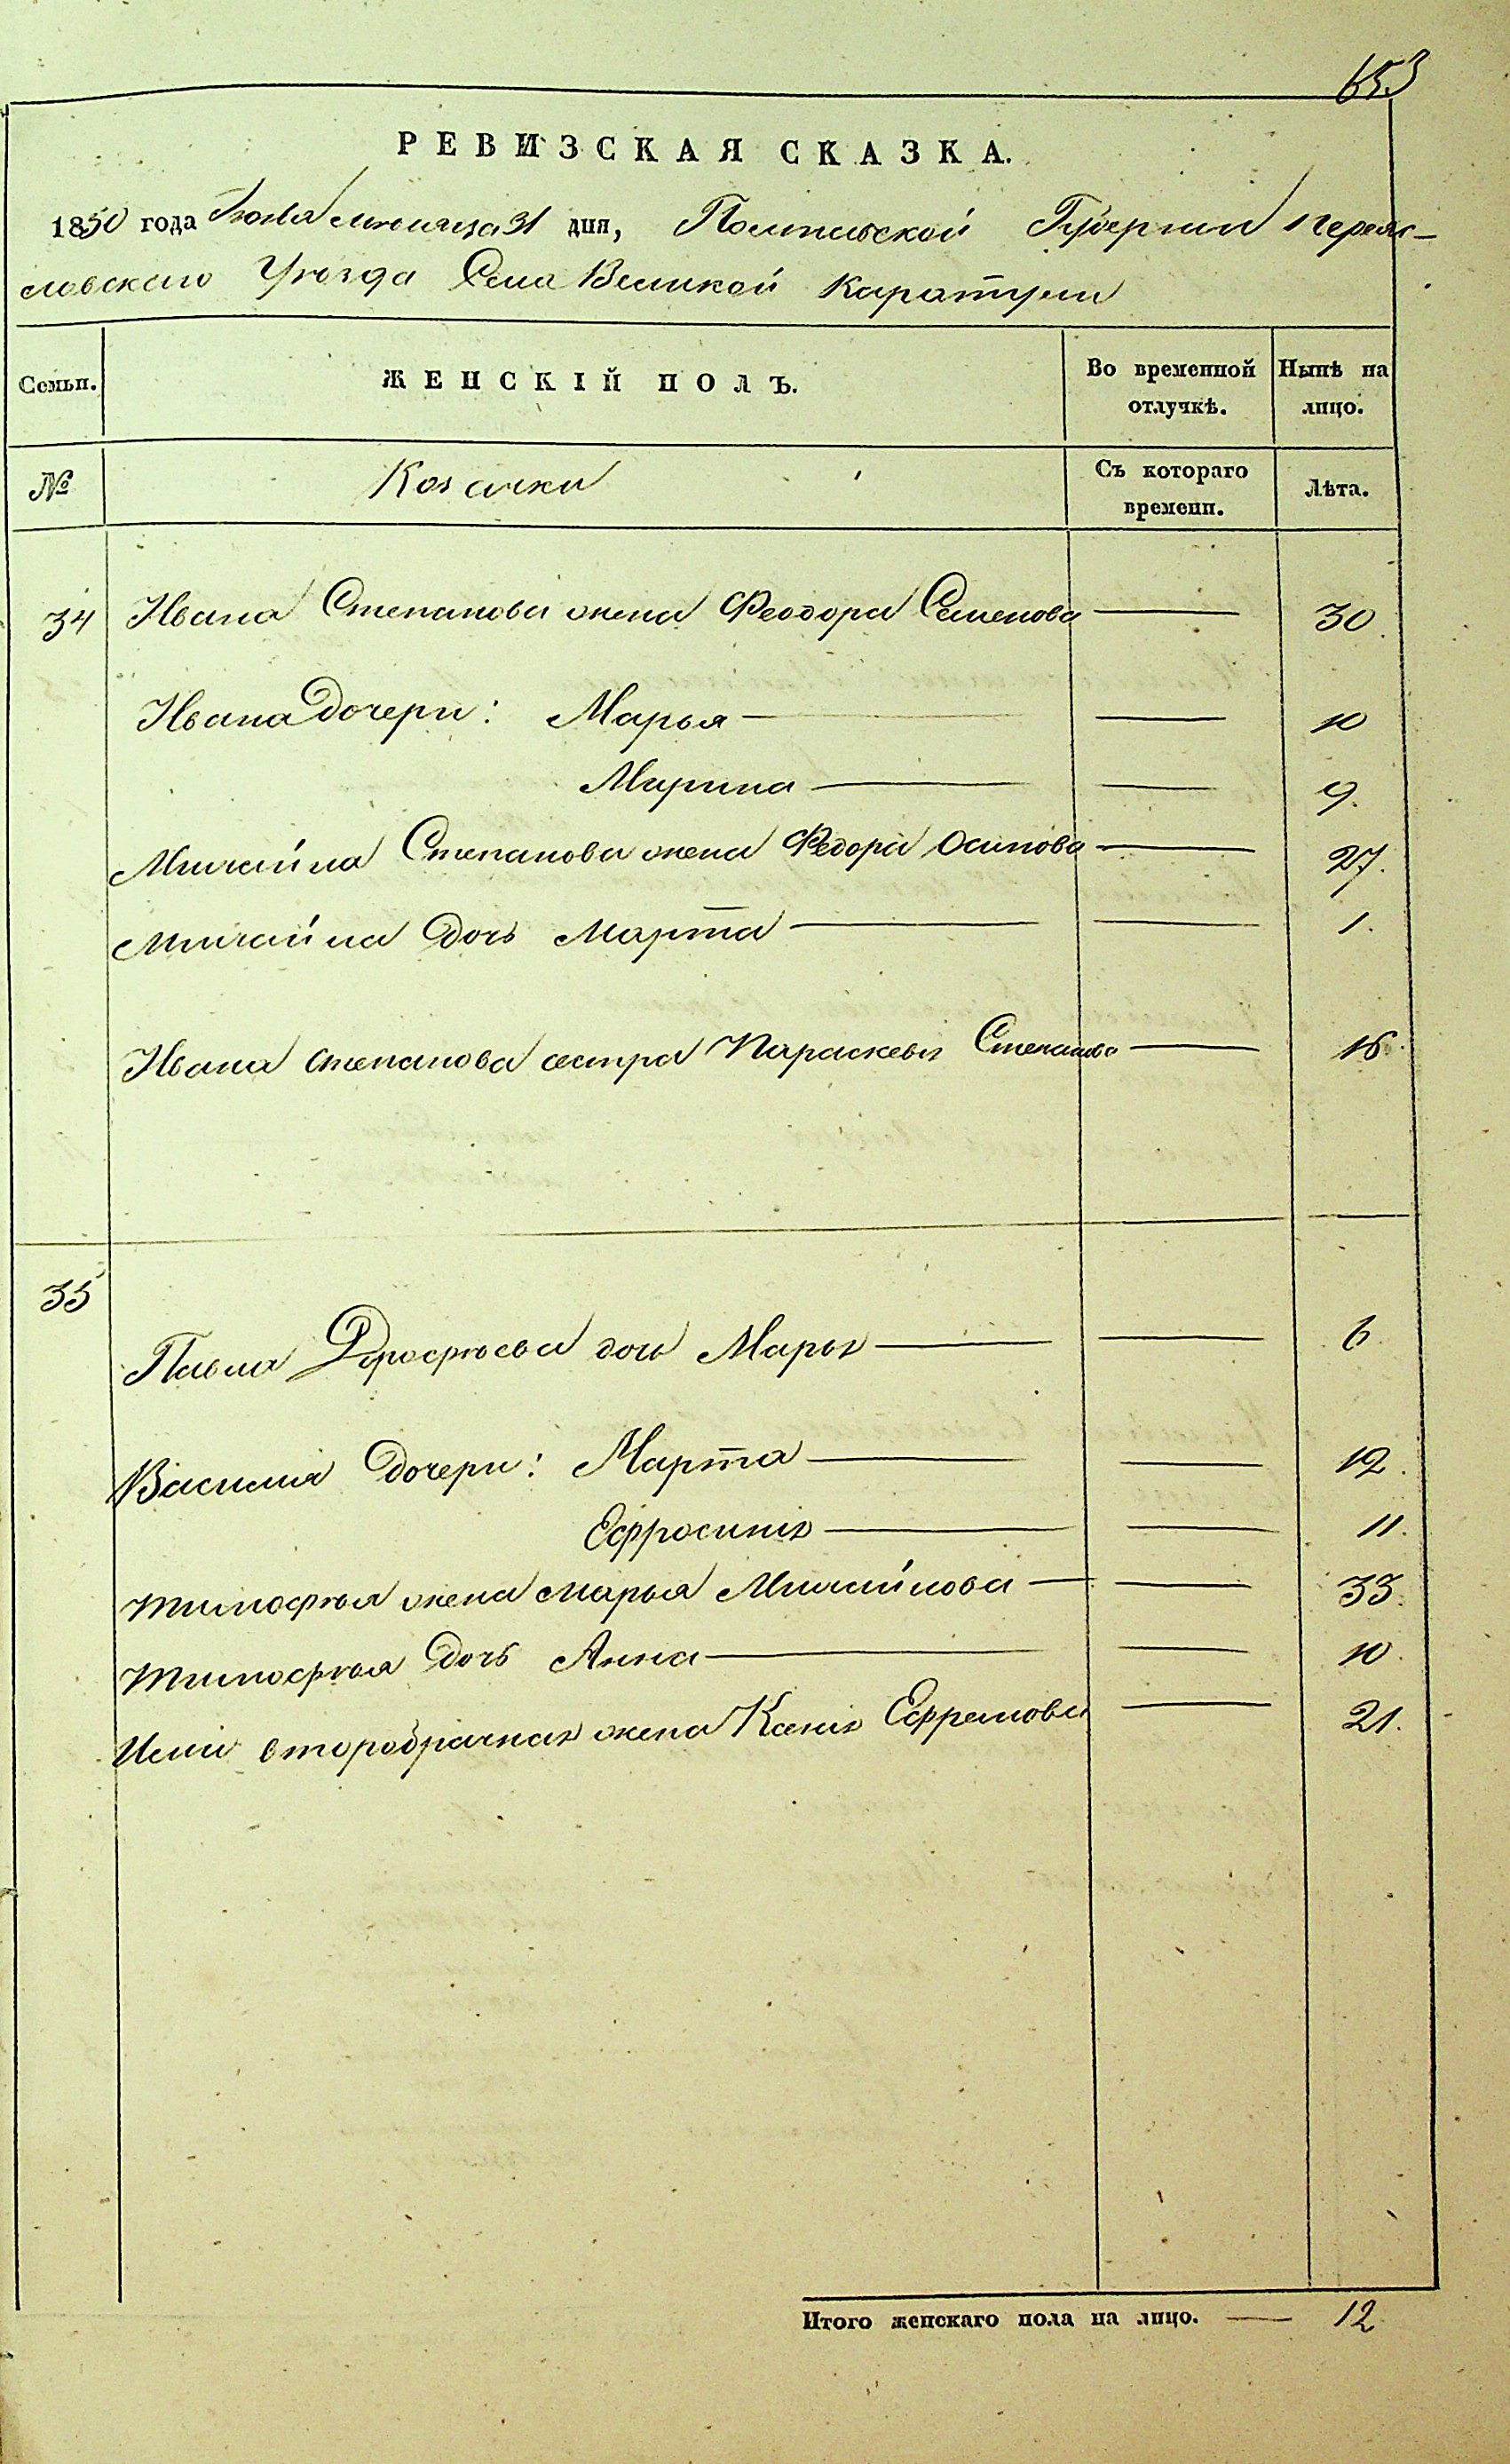 653
РЕВИЗСКАЯ СКАЗКА.
1850 года Іюля мѣсяца 31 дня, Полтавской Губерніи Переяс-
ловскаго Уѣзда Села Великой Каратули
Семьи. ЖЕНСКІЙ ПОЛЪ. Во временной отлучкѣ. Нынѣ на лицо.
№ Козачки Съ котораго времени. Лѣта.
34 Ивана Степанова жена Феодора Семенова — 30
Ивана Дочери: Марья — — 10
Марина — — 9.
Михайла Степанова жена Федора Осипова — 27.
Михайла Дочь Марта — — 1.
Ивана Степанова сестра Параскевія Степанова — 16
35
Павла Дорофѣева дочь Марья — — 6
Василія Дочери: Марта — — 12.
Ефросинія — — 11.
Тимофѣя жена Марья Михайлова — — 33.
Тимофѣя Дочь Анна — — 10.
второбрачная жена Ксенія Ефремова — 21.
Итого женскаго пола на лицо. — 12